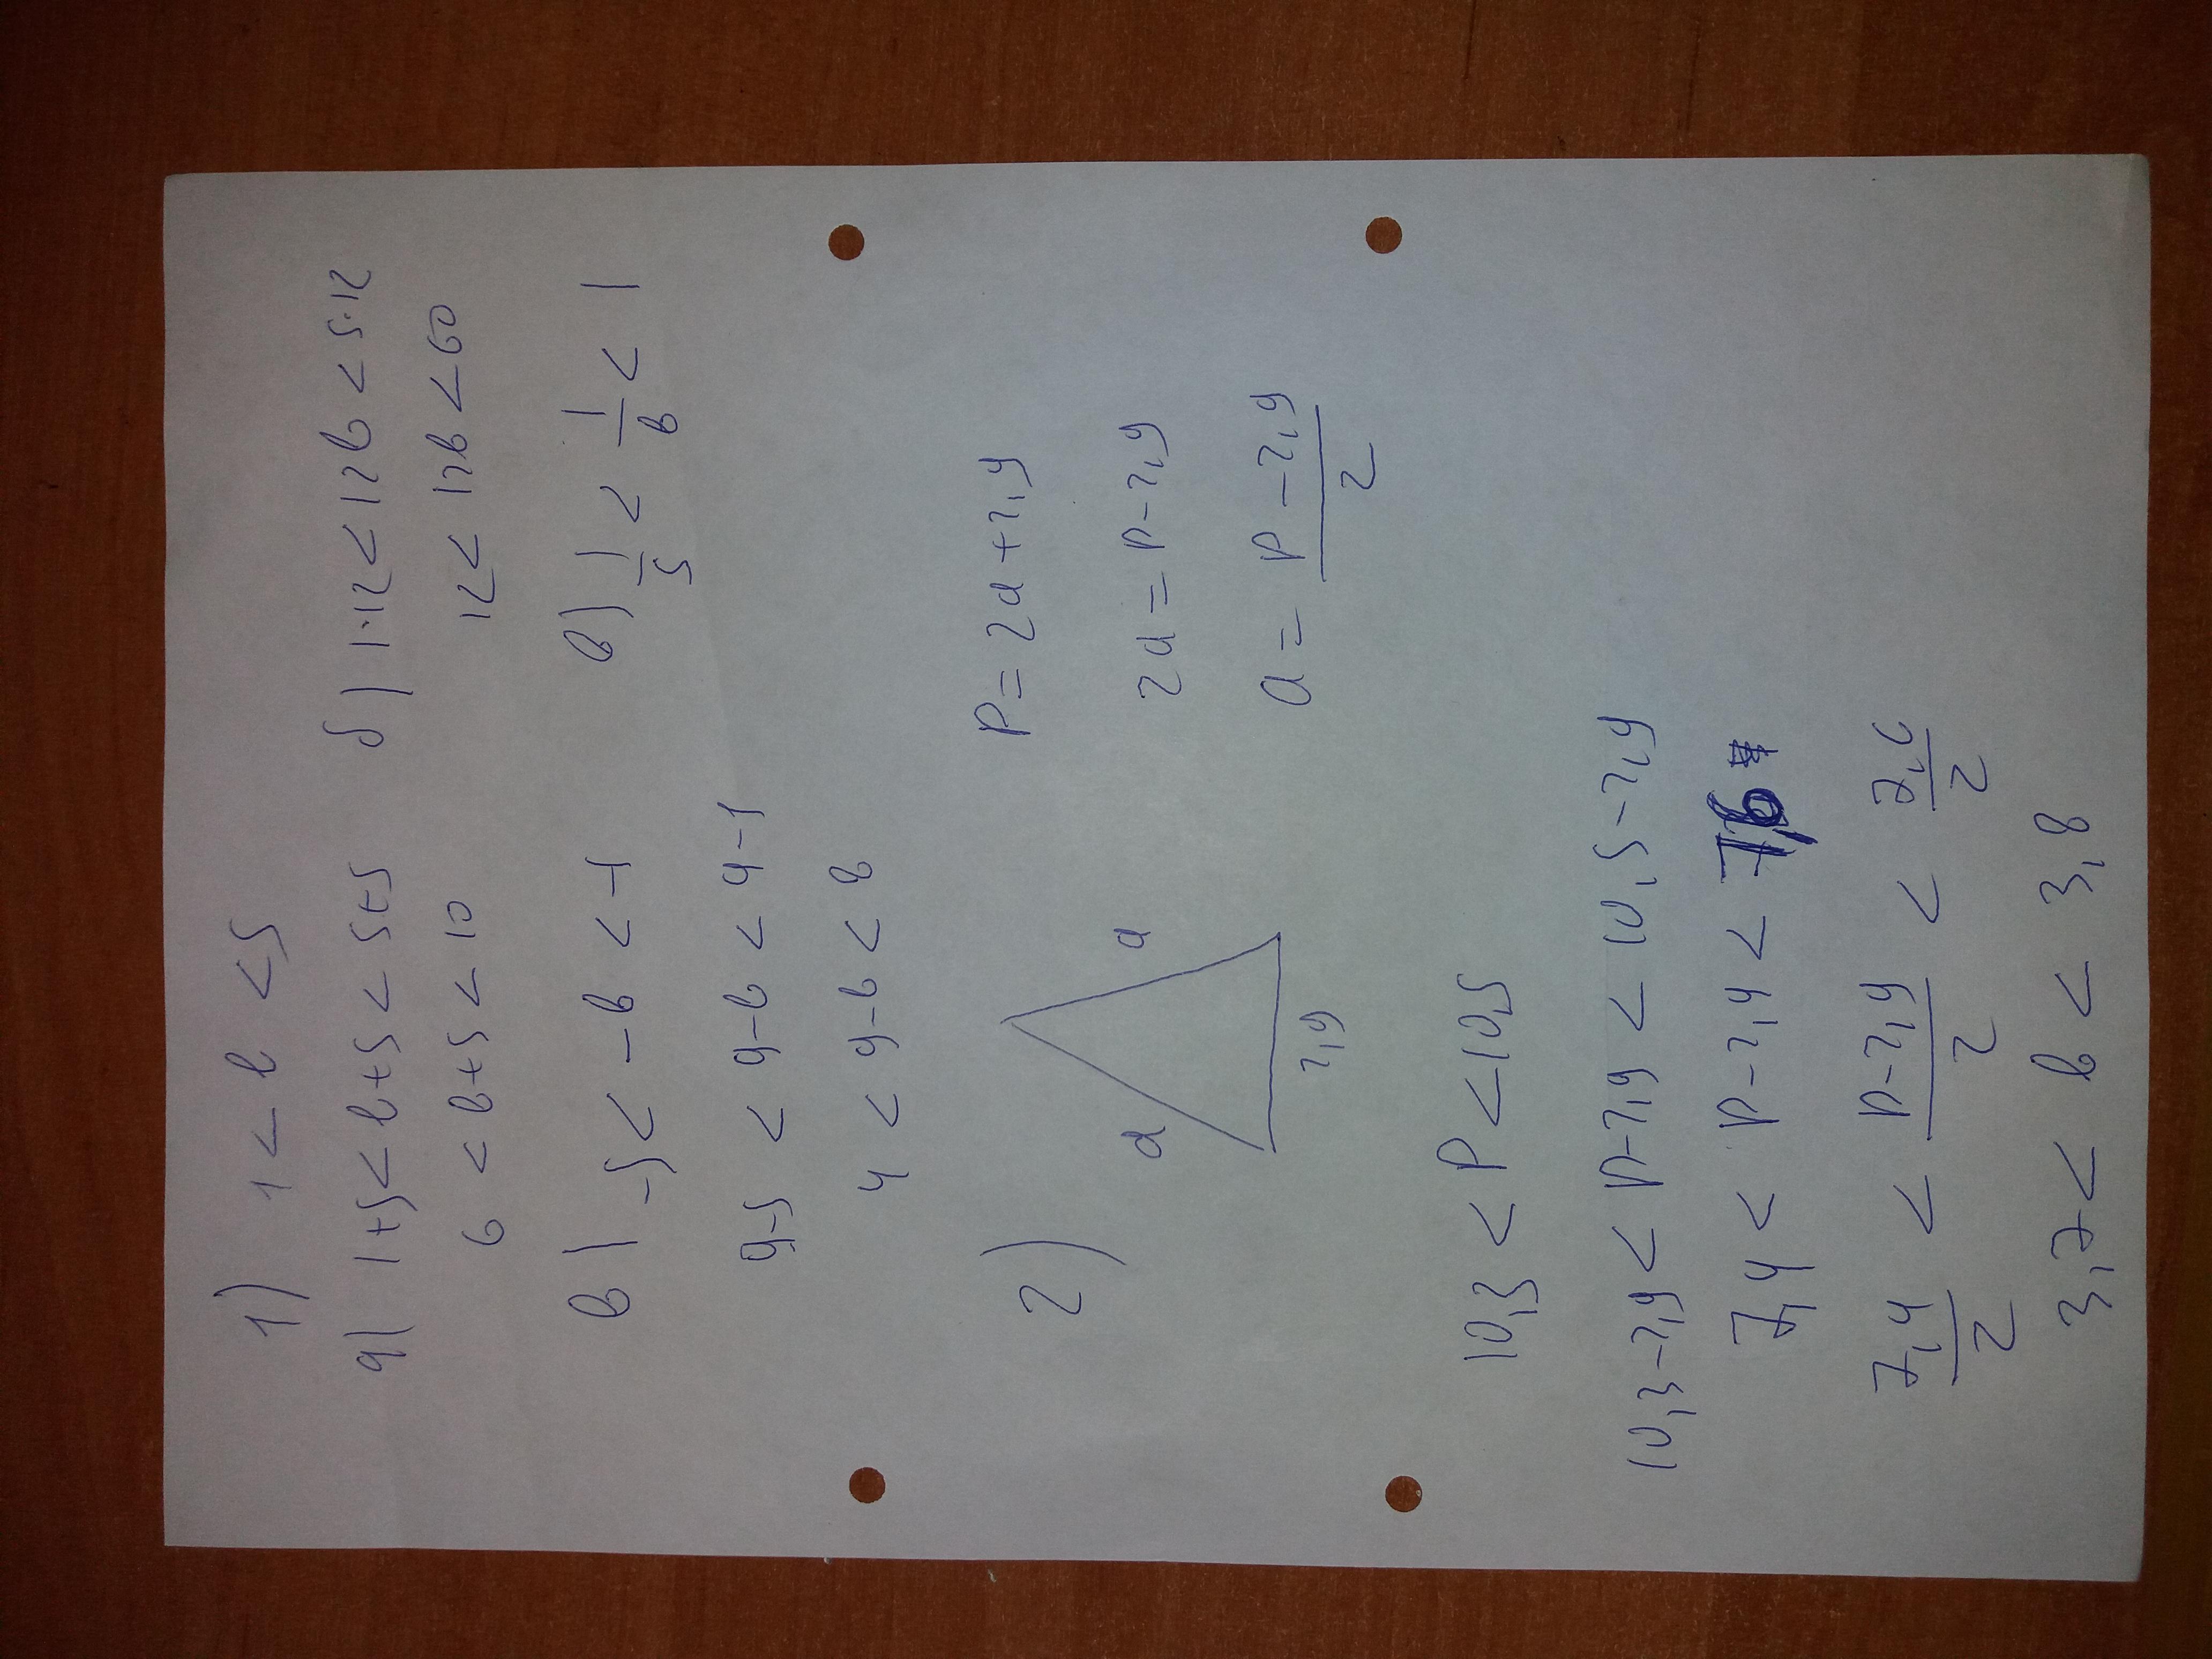 1) 1 < b < 5
а) 1+5 < b+5 < 5+5
6 < b+5 < 10
б) 1·12 < 12b < 5·12
12 < 12b < 60
в) -5 < -b < -1
9-5 < 9-b < 9-1
4 < 9-b < 8
в) 1/5 < 1/b < 1
2)
a a
2,9
P = 2a + 2,9
2a = P - 2,9
a = (P - 2,9)/2
10,3 < P < 10,5
10,3-2,9 < P-2,9 < 10,5-2,9
7,4 < P-2,9 < 7,6
7,4/2 < (P-2,9)/2 < 7,6/2
3,7 < b < 3,8